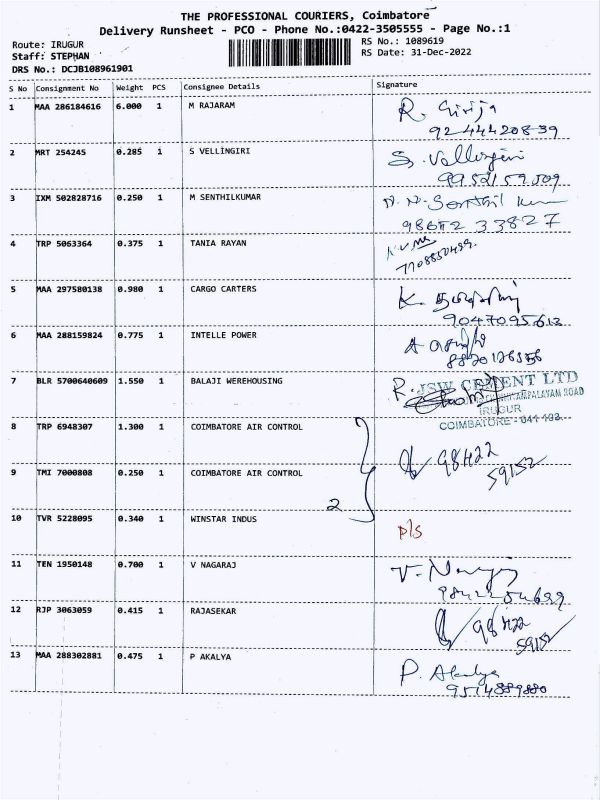 THE PROFESSIONAL COURIERS, Coimbatore
Delivery Runsheet - PCO - Phone No.:0422-3505555 - Page No.:1
Route: IRUGUR RS No.: 1089619
Staff: STEPHAN RS Date: 31-Dec-2022
DRS No.: DCJB108961901
S No Consignment No Weight PCS Consignee Details Signature
1 MAA 286184616 6.000 1 M RAJARAM R. Girija
9244420839
2 MRT 254245 0.285 1 S VELLINGIRI S. Vellingiri
9952159509
3 IXM 502828716 0.250 1 M SENTHILKUMAR
98652 33827
4 TRP 5063364 0.375 1 TANIA RAYAN
7708850499.
5 MAA 297580138 0.980 1 CARGO CARTERS K.
9047095613
6 MAA 288159824 0.775 1 INTELLE POWER
8820126556
7 BLR 5700640609 1.550 1 BALAJI WEREHOUSING R. JSW CEMENT LTD
IRUGUR
COIMBATORE - 641 103.
8 TRP 6948307 1.300 1 COIMBATORE AIR CONTROL
98422
59152
9 TMI 7000808 0.250 1 COIMBATORE AIR CONTROL
2
10 TVR 5228095 0.340 1 WINSTAR INDUS P/S
11 TEN 1950148 0.700 1 V NAGARAJ V. Nagaraj
9842254699
12 RJP 3063059 0.415 1 RAJASEKAR 98422
59152
13 MAA 288302881 0.475 1 P AKALYA P. Akalya
9514889880